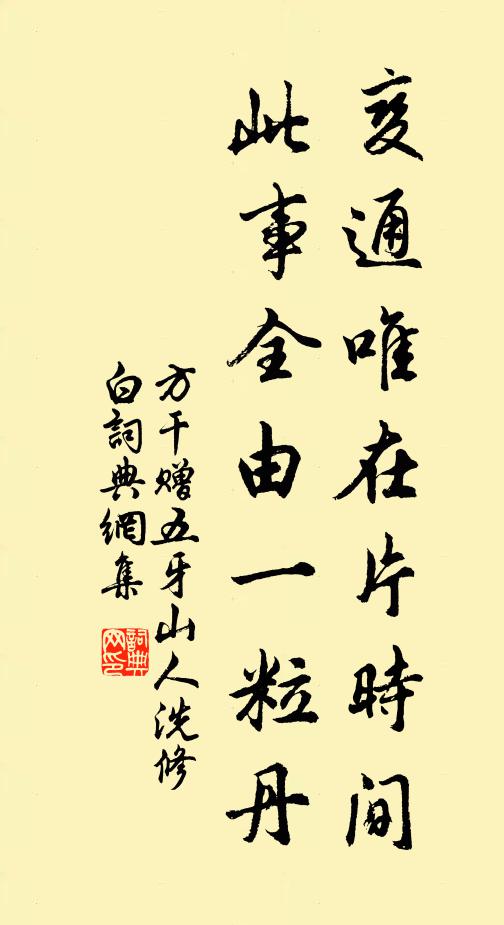 变通唯在片時間
此事全由一粒丹
方干赠五牙山人洗修
白詞典網集
詞典网印